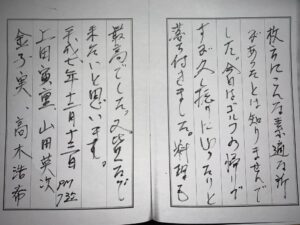 枚方にこんな素適な所
があったとは知りませんで
した。今日はゴルフの帰りで
すが久し振りにゆったりと
落ち付きました。料理も
最高でした。又皆なで
来たいと思います。
平成七年十二月十三日 PM 7:32
上田 山田英次
金子実、高木浩希